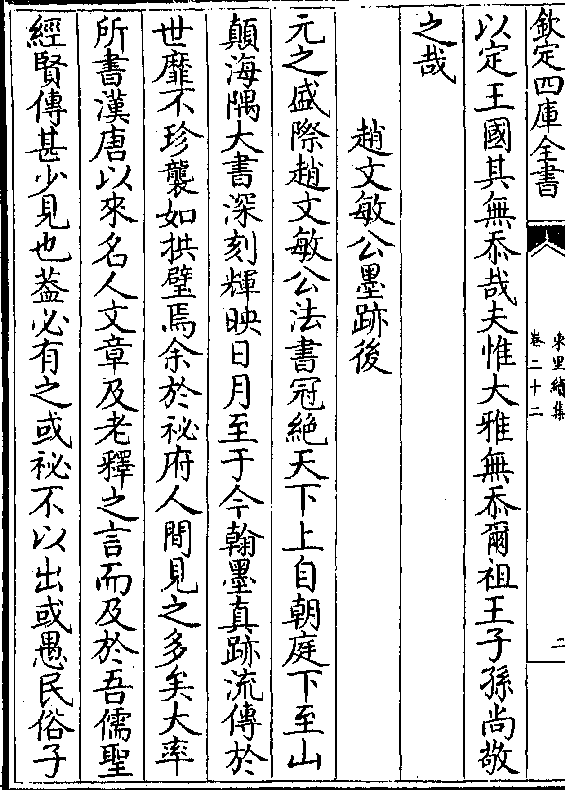 欽定四庫全書
東里續集
卷二十二
二
以定王國其無忝哉夫惟大雅無忝爾祖王子孫尚敬
之哉
趙文敏公墨跡後
元之盛際趙文敏公法書冠絶天下上自朝庭下至山
顛海隅大書深刻輝映日月至于今翰墨真跡流傳於
世靡不珍襲如拱璧焉余於祕府人間見之多矣大率
所書漢唐以來名人文章及老釋之言而及於吾儒聖
經賢傳甚少見也葢必有之或祕不以出或愚民俗子